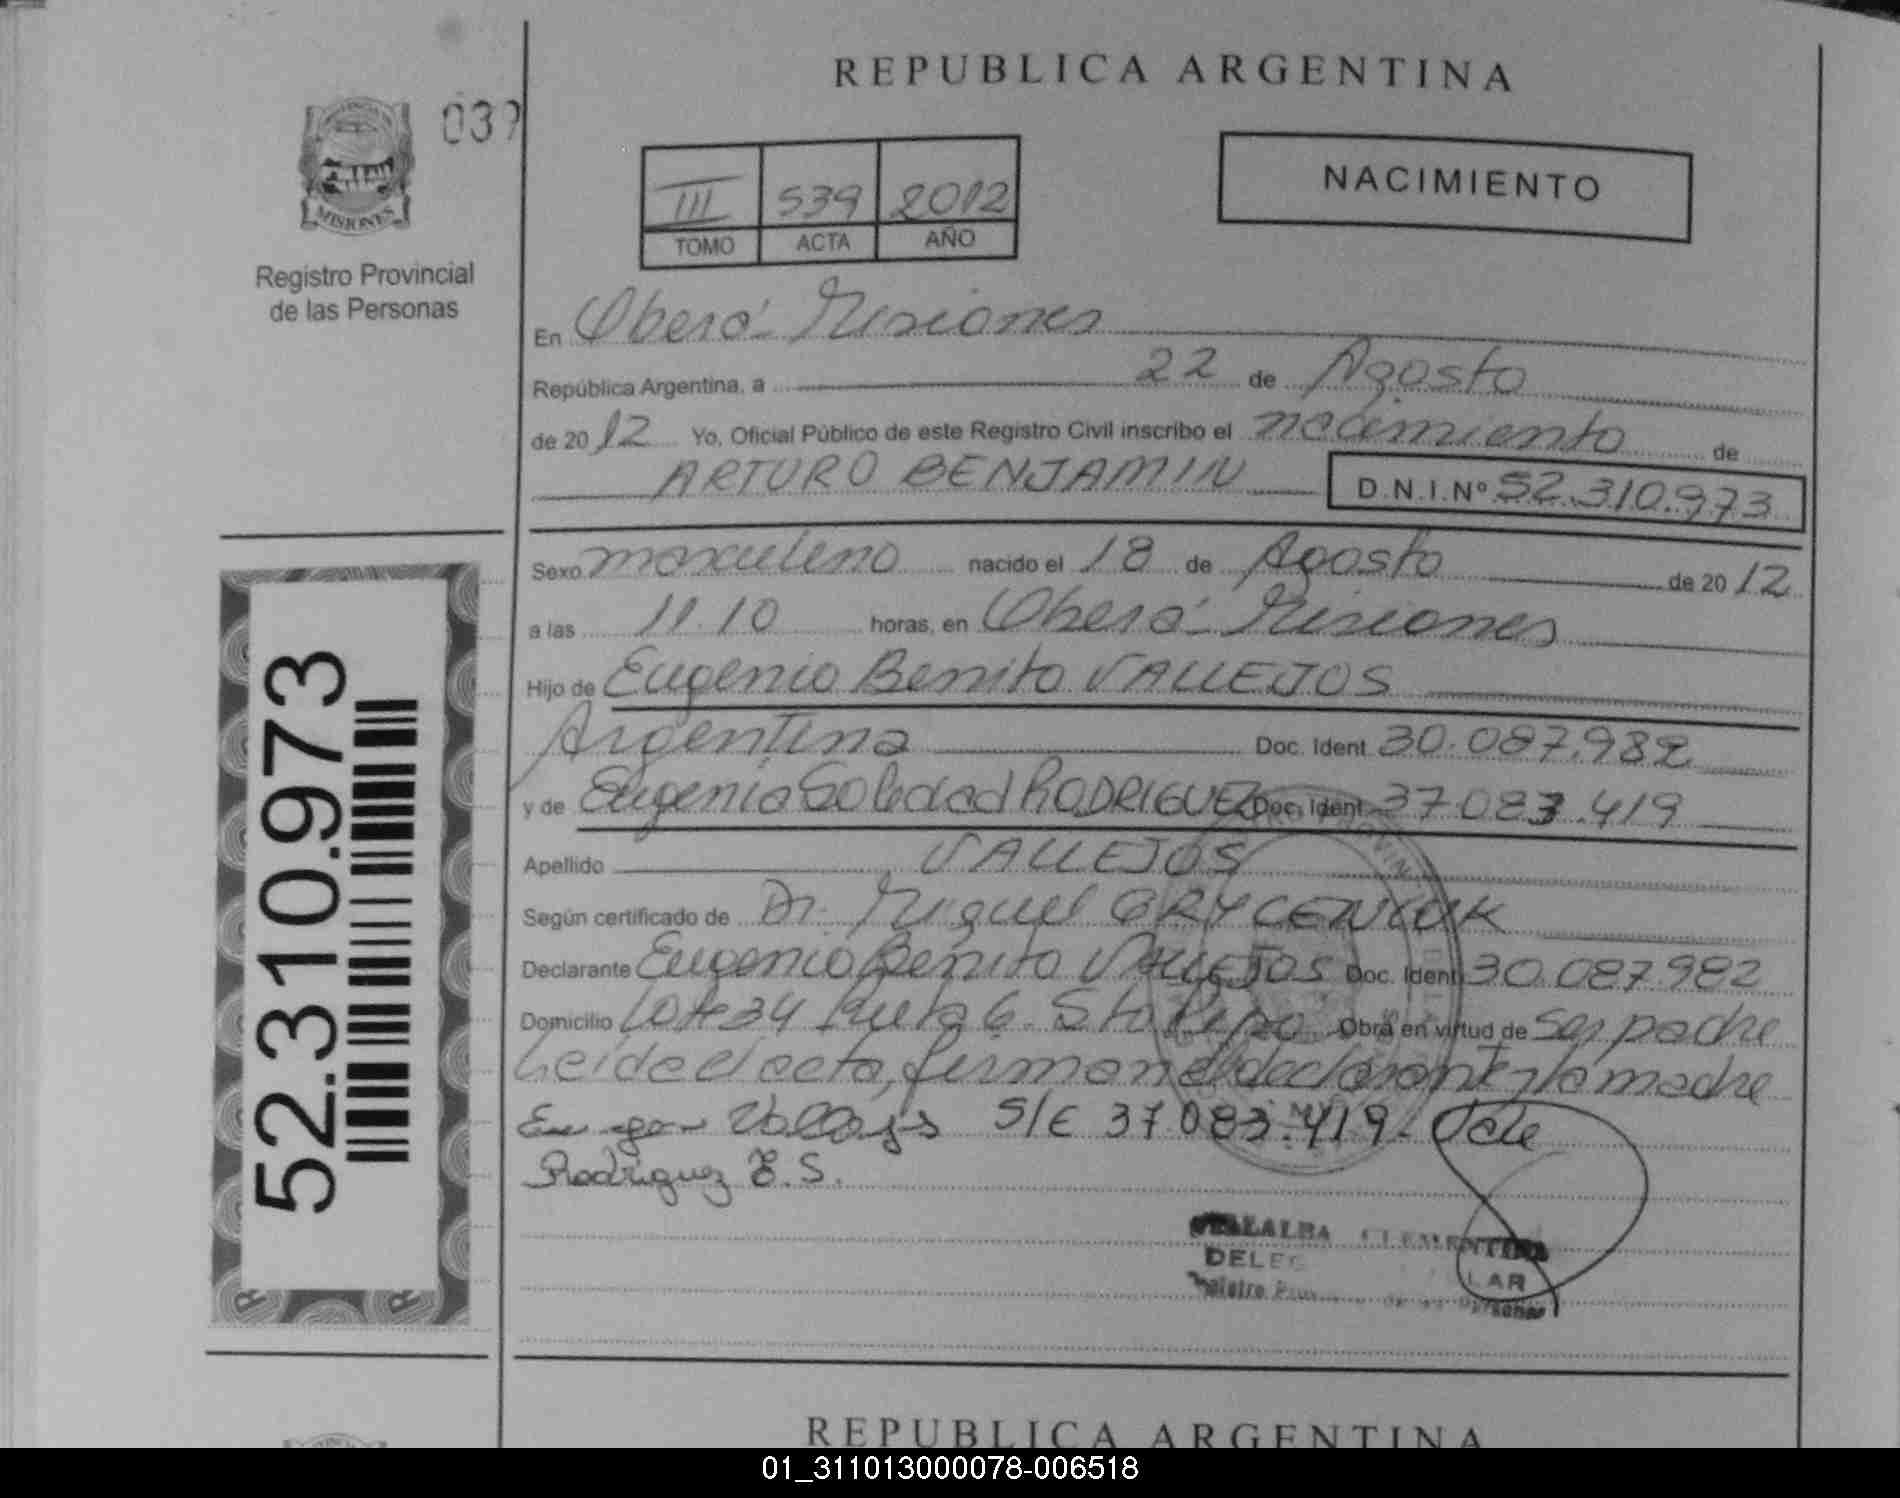 REPUBLICA ARGENTINA
039
MISIONES
Registro Provincial
de las Personas
III 539 2012
TOMO ACTA AÑO
NACIMIENTO
En Oberá - Misiones
República Argentina, a 22 de Agosto
de 2012 Yo, Oficial Público de este Registro Civil inscribo el nacimiento de
ARTURO BENJAMIN D.N.I.Nº 52.310.973
Sexo masculino nacido el 18 de Agosto de 2012
a las 11.10 horas, en Oberá - Misiones
Hijo de Eugenio Benito VALLEJOS
Argentina Doc. Ident. 30.087.982
y de Eugenia Soledad RODRIGUEZ Doc. Ident. 37.083.419
Apellido VALLEJOS
Según certificado de Dr. Miguel GRYCENIUK
Declarante Eugenio Benito VALLEJOS Doc. Ident. 30.087.982
Domicilio Lote 34 Ruta 6. Sto Pipo Obra en virtud de ser padre
Leida el acta, firman el declarante y la madre
Vallejos S/E 37.083.419. Vale
Rodriguez E.S.
CLEMENTINA
de las Personas
52.310.973
REPUBLICA ARGENTINA
01_311013000078-006518